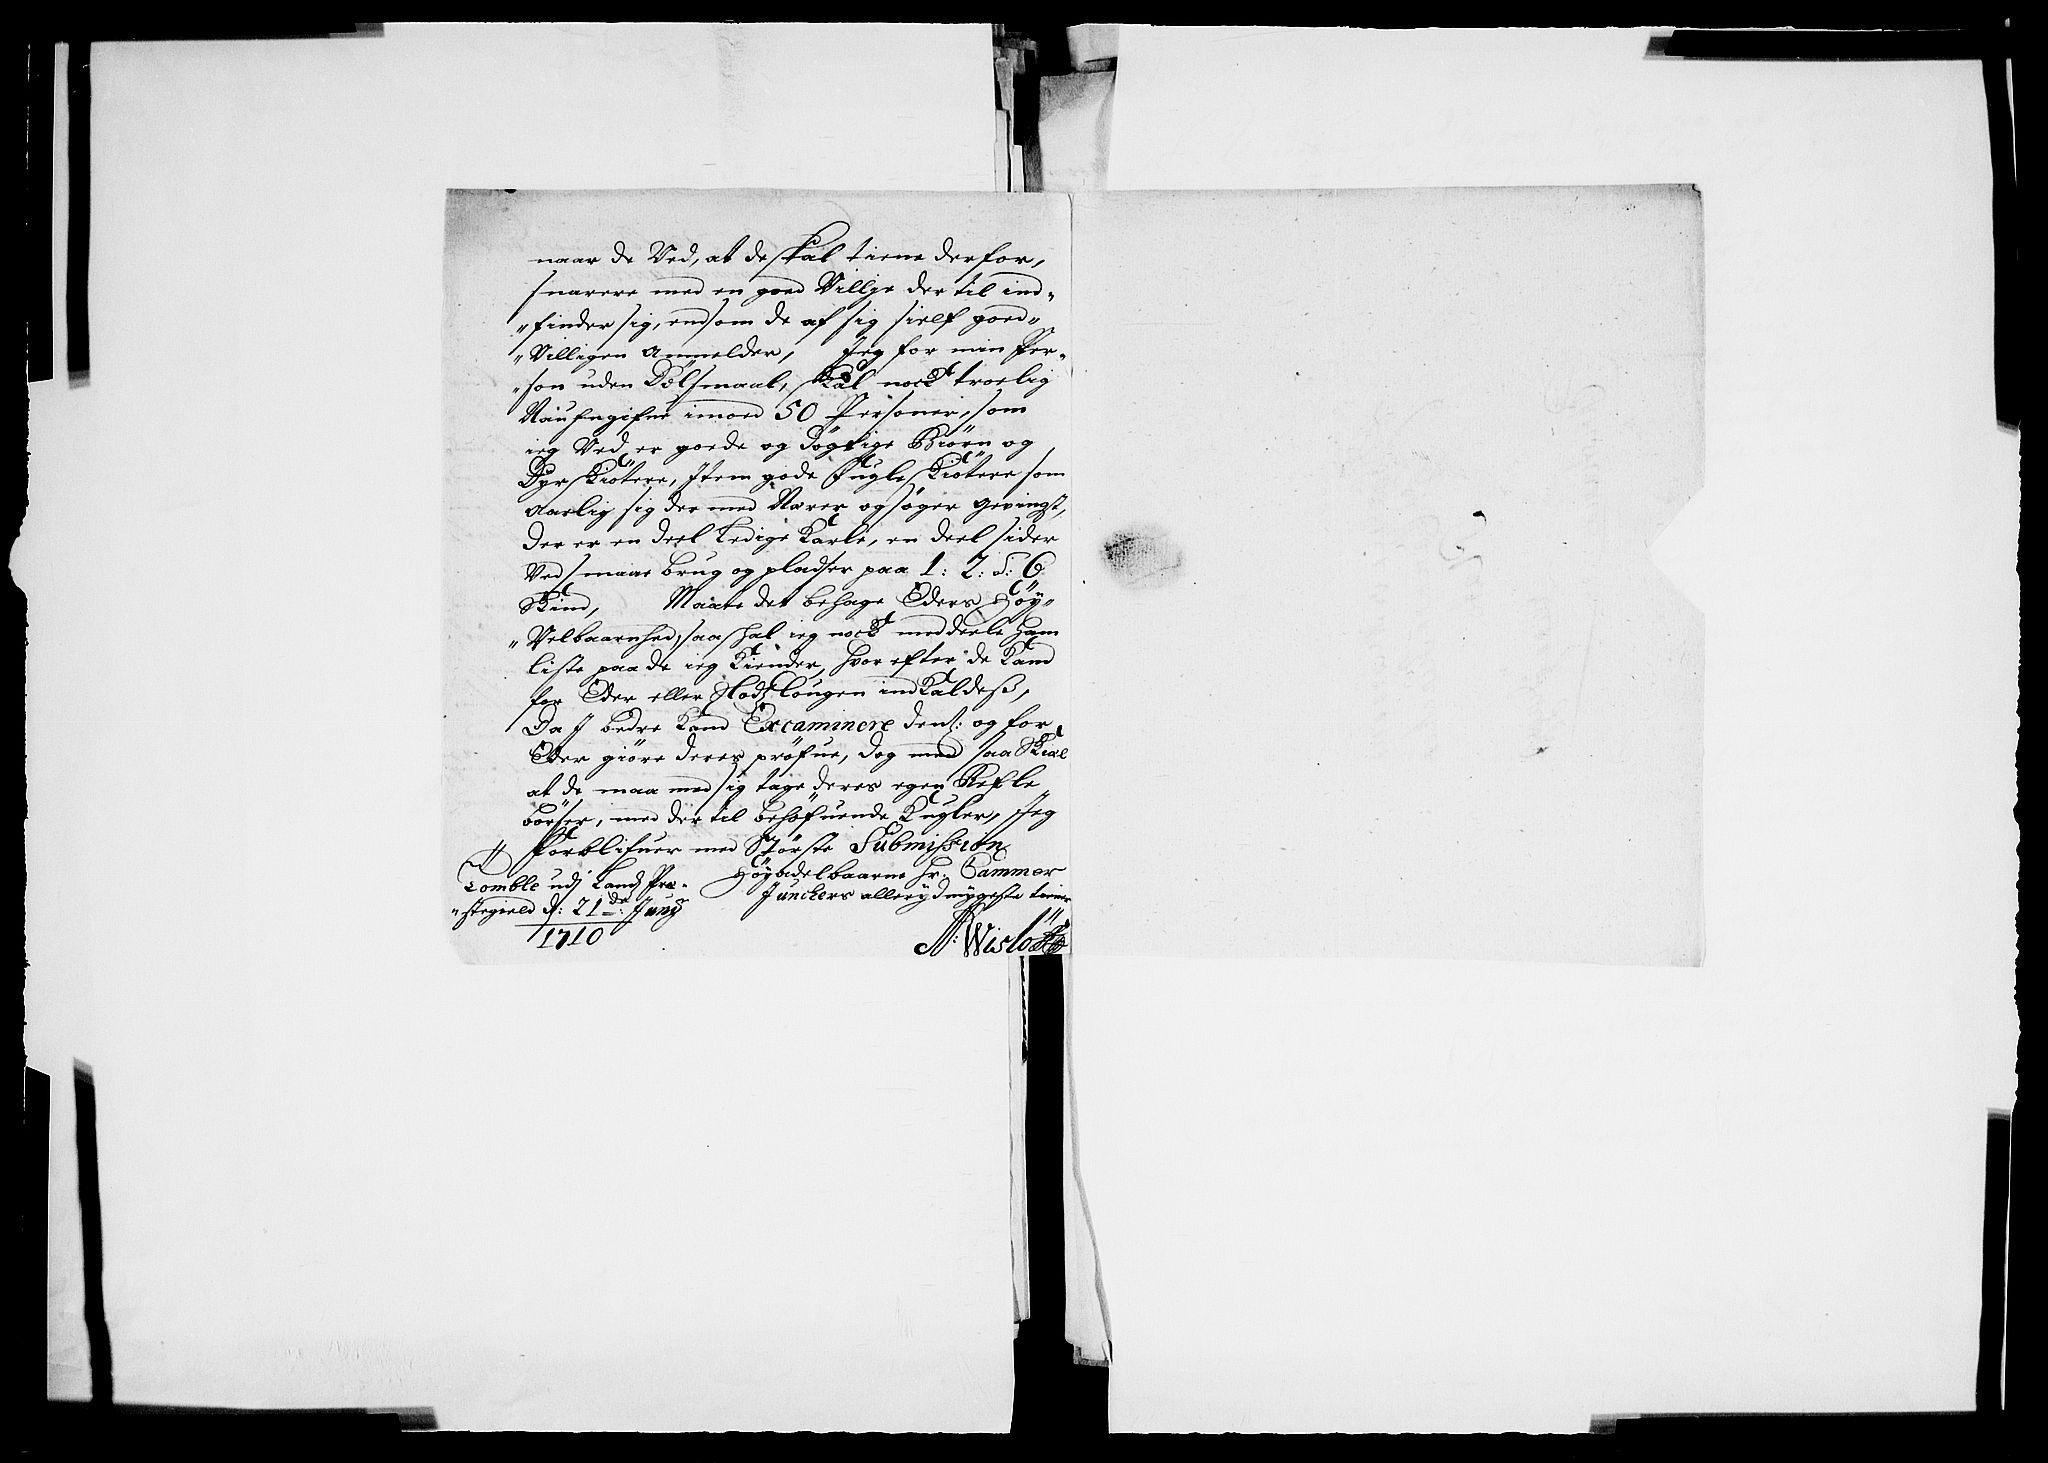 naar de Ved, at de skal tiene derfor,
snarere med en goed Villje der til ind-
"finder sig, end som de af sig sielf goed-
"Villigen Anmelder, Jeg for min Per-
"son uden Dølsmaal, skal nock troelig
Naufngifue imoed 50 Personer, som
ieg Ved er goede og døgtige Biørn og
Dyr skiøtere, Item gode fugle skiøtere som
Aarlig sig der med Nærer og søger gevingst,
der er en deel Ledige Karle, en deel sider
Ved smaae brug og pladser paa 1: 2: à: 6
Skind, Maatte det behage Eders Høy-
"Velbaarnhed, saa skal ieg nock meddeele ham
liste paa de ieg Kiender, hvor efter de Kand
for Eder eller Hodtzlougen ind Kaldeß,
Da I bedre Kand Excaminere dem: og for
Eder giøre deres prøfue, dog med saa Skiæl
at de maa med sig tage deres egen Refle
bøßer, med der til behøfuende Kugler, Jeg
forblifuer med Største Submission
Høyædelbaarne Hr. Cammer
Junckers allerydmygeste tiener
Tomble udj Landz Præ-
"stegield d: 21de: Junÿ
1710
A: Wisloff